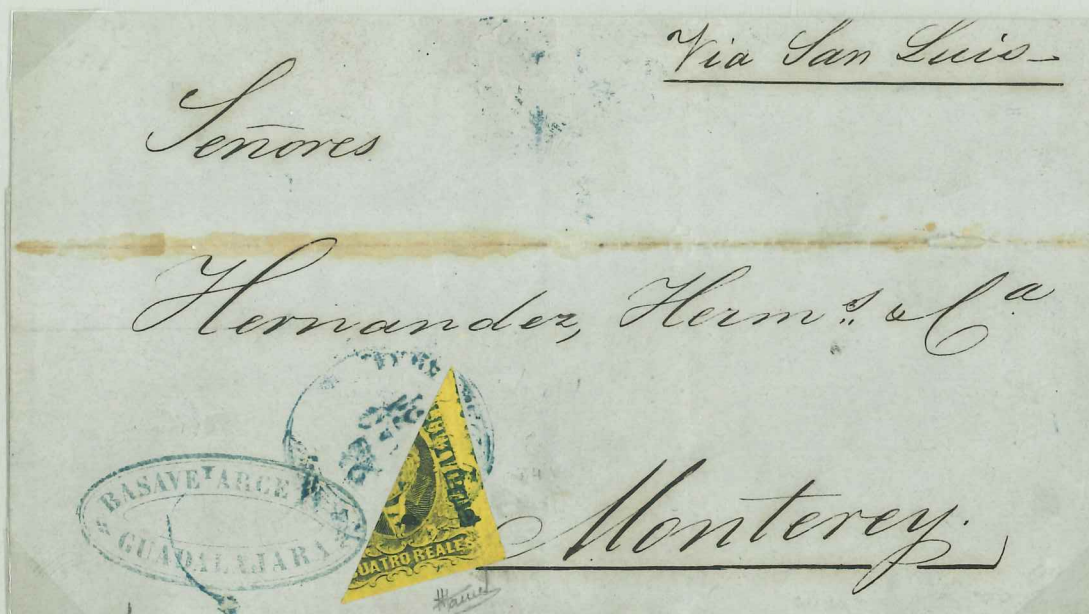 Via San Luis
Señores
Hernandez, Herm.s & C.a
BASAVE Y ARCE
GUADALAJARA
UATRO REALE
Monterey.